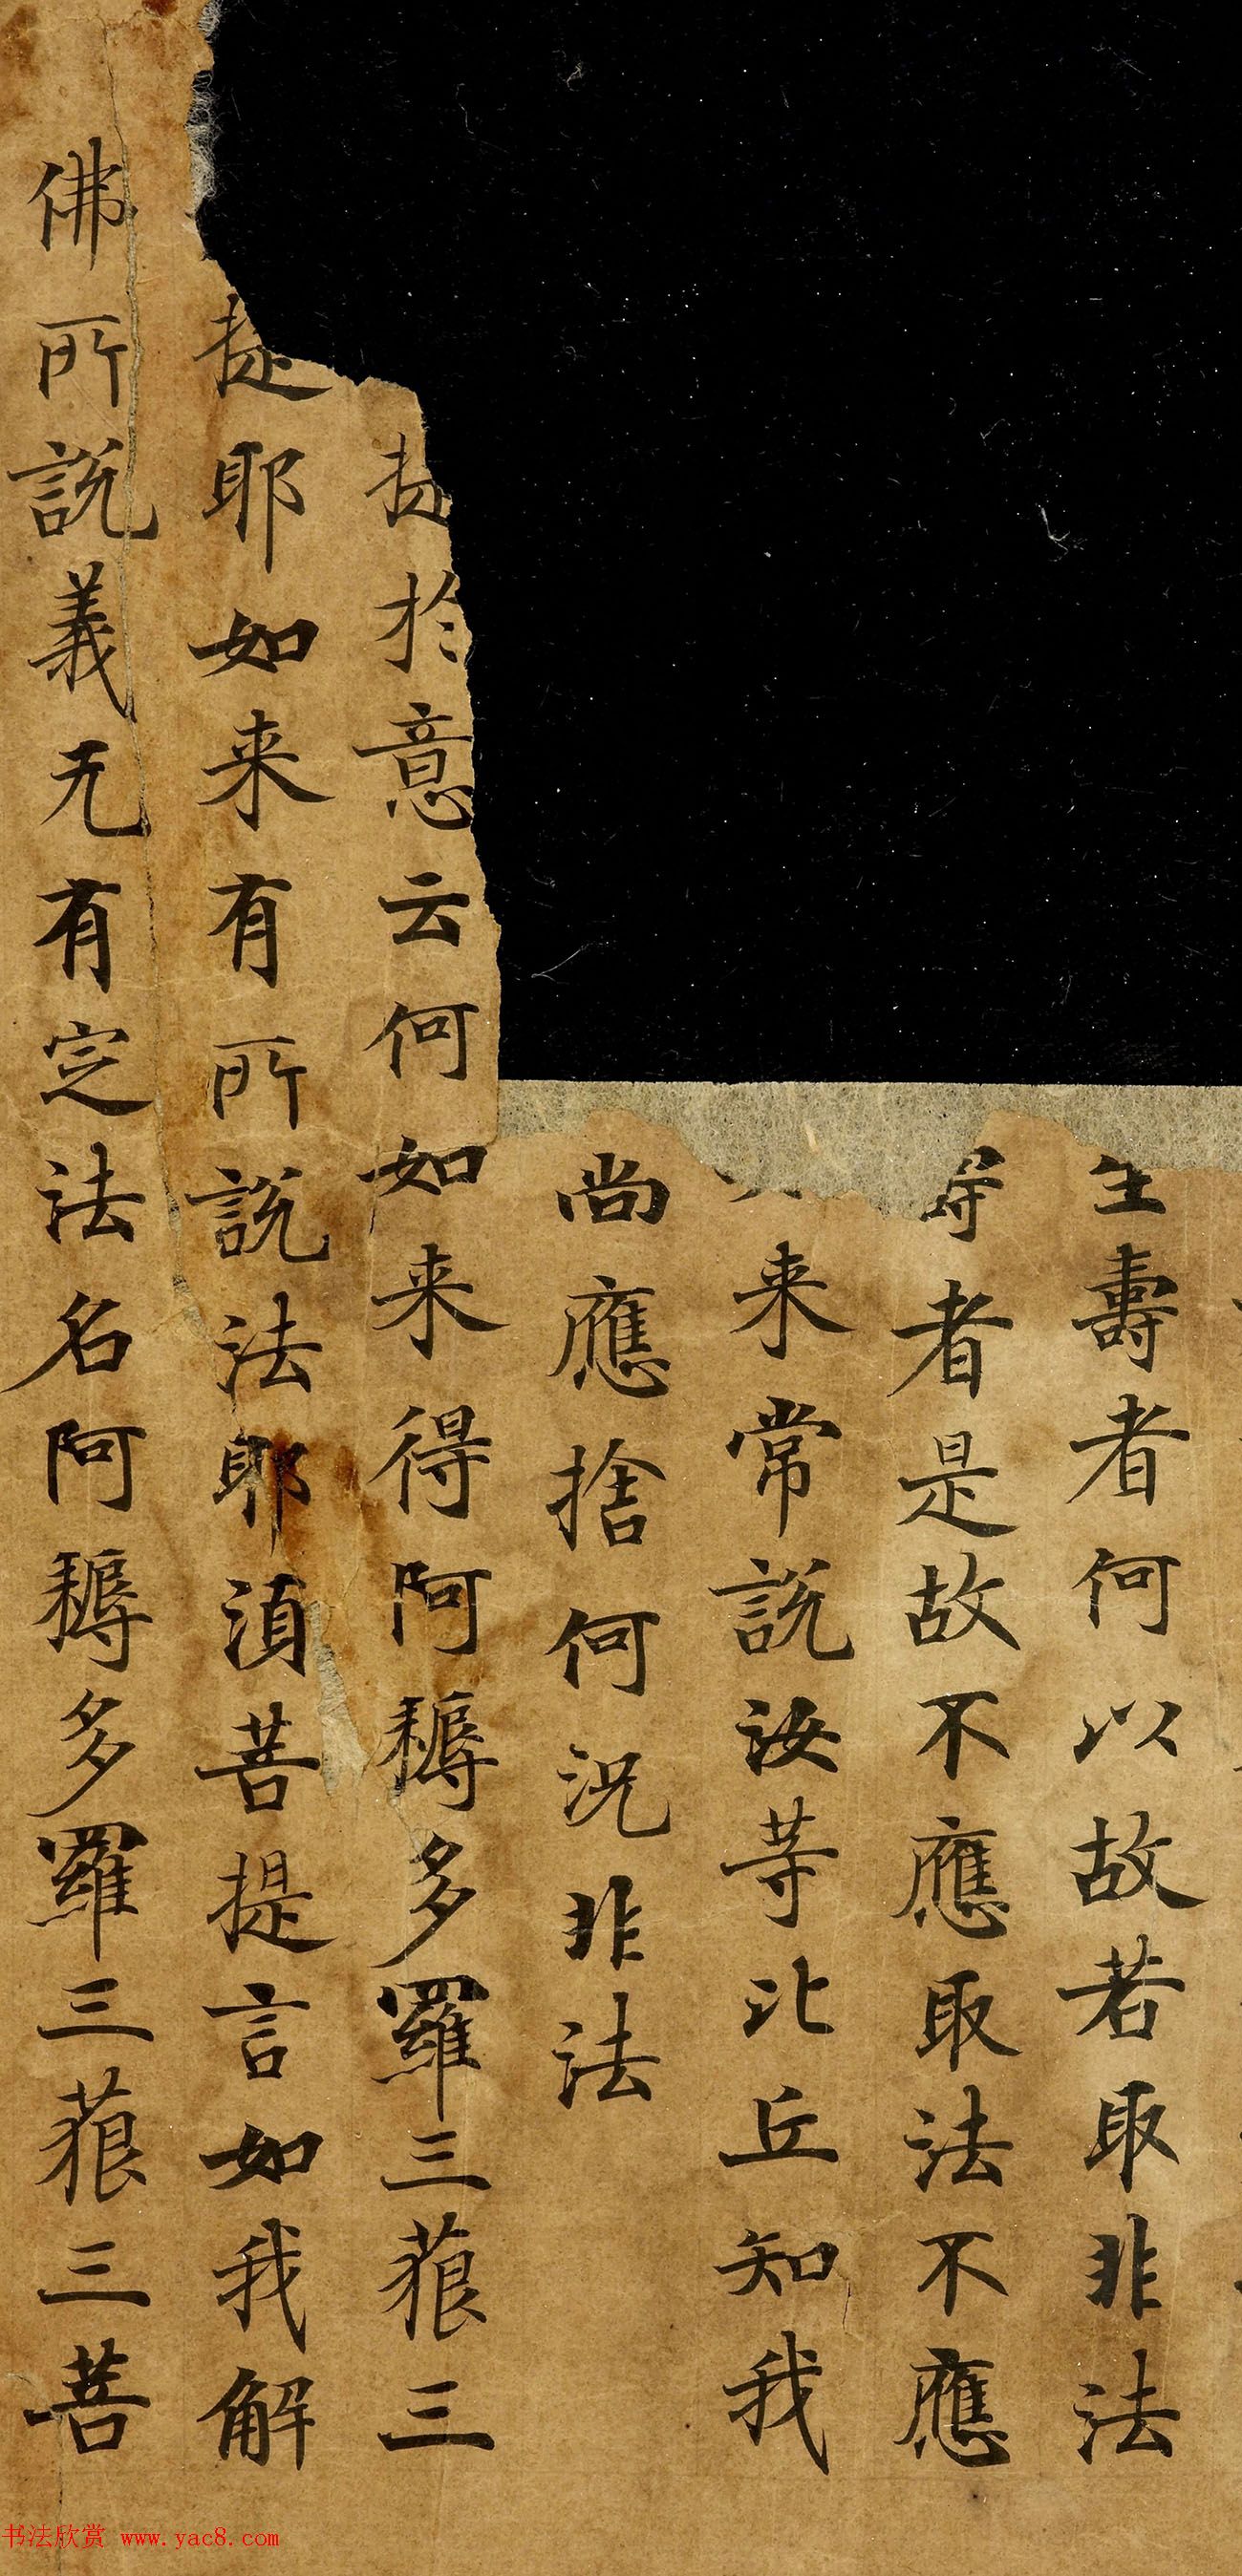 生壽者何以故若取非法
壽者是故不應取法不應
来常說汝等比丘知我
尚應捨何況非法
提於意云何如来得阿耨多羅三藐三
提耶如来有所說法耶湏菩提言如我解
佛所說義无有定法名阿耨多羅三藐三菩
书法欣赏 www.yac8.com